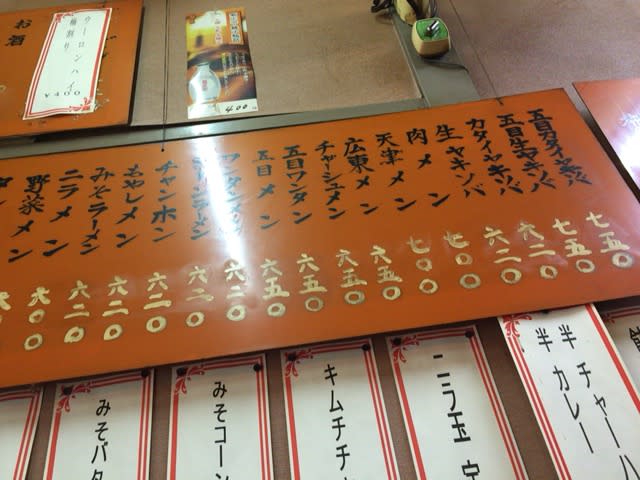 お酒
ウーロンハイ
梅割り
¥400
400
五目カタイヤキソバ 七五〇
五目生ヤキソバ 七五〇
カタイヤキソバ 六二〇
生ヤキソバ 六二〇
肉メン 七〇〇
天津メン 七〇〇
広東メン 六五〇
チャシュメン 六五〇
五目ワンタン 六五〇
五目メン 六五〇
ワンタンメン 六二〇
六二〇
チャンポン 六二〇
もやしメン 六二〇
みそラーメン 六二〇
ニラメン 六〇〇
野菜メン
半チャーハ
半カレー
ニラ玉
キムチチャ
みそコーン
みそバタ